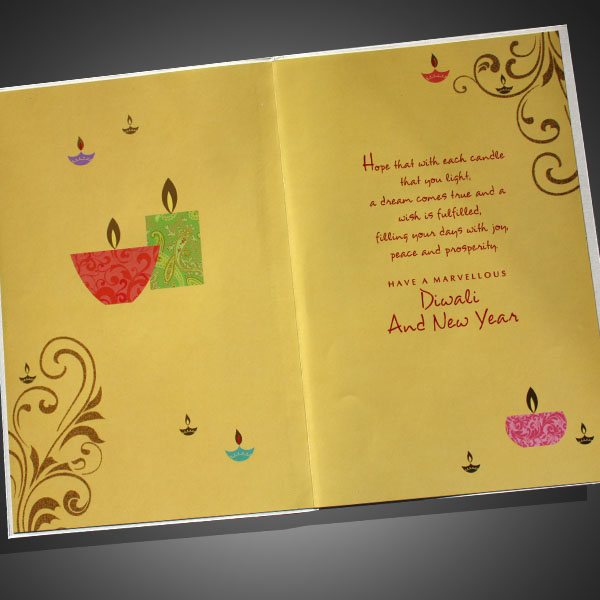 Hope that with each candle
that you light,
a dream comes true and a
wish is fulfilled,
filling your days with joy,
peace and prosperity.
HAVE A MARVELLOUS
Diwali
And New Year